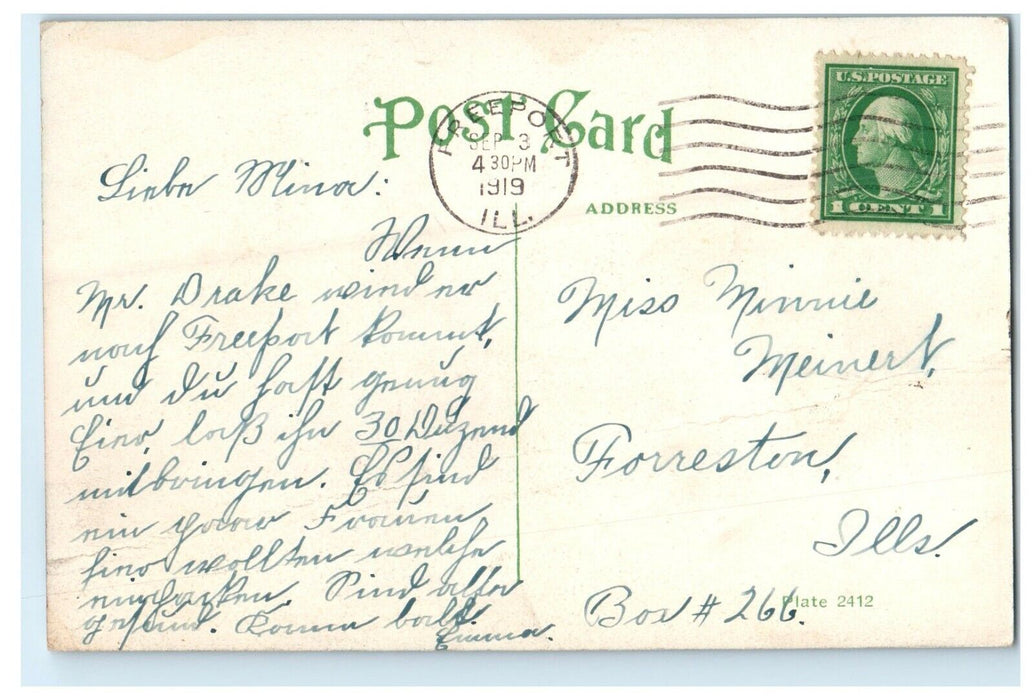 Post Card
FREEPORT
SEP 3
4 30 PM
1919
ILL.
U.S. POSTAGE
1 CENT 1
ADDRESS
Liebe Mina:
Wenn
Mr. Drake wieder
nach Freeport kommt,
und du hast genug
Eier, laß ihn 30 Duzend
mitbringen. Es sind
ein paar Frauen
hier wollten welche
einpacken. Sind alle
gesund. Komm bald.
Emma.
Miss Minnie
Meinert,
Forreston,
Ills.
Box # 266.
Plate 2412